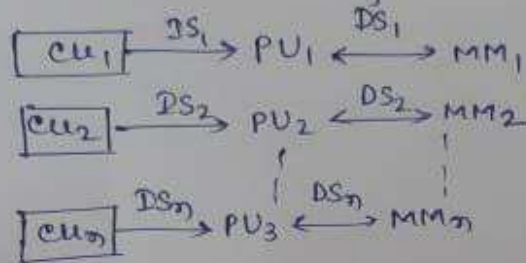 CU1 DS1 PU1 DS1 MM1
CU2 DS2 PU2 DS2 MM2
CUn DSn PU3 DSn MMn